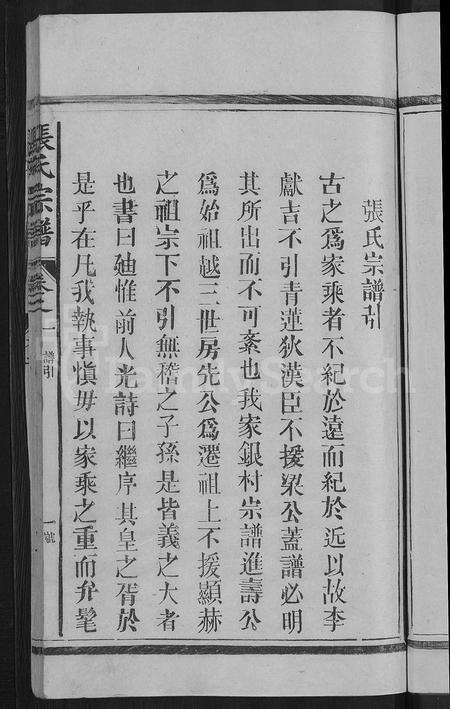 張氏宗譜引
古之爲家乘者不紀於遠而紀於近以故李
獻吉不引青蓮狄漢臣不援梁公蓋譜必明
其所出而不可紊也我家銀村宗譜進壽公
爲始祖越三世房先公爲遷祖上不援顯赫
之祖宗下不引無稽之子孫是皆義之大者
也書曰廸惟前人光詩曰繼序其皇之胥於
是乎在凡我執事愼毋以家乘之重而弁髦
張氏宗譜
卷之一
譜引
一號
FamilySearch